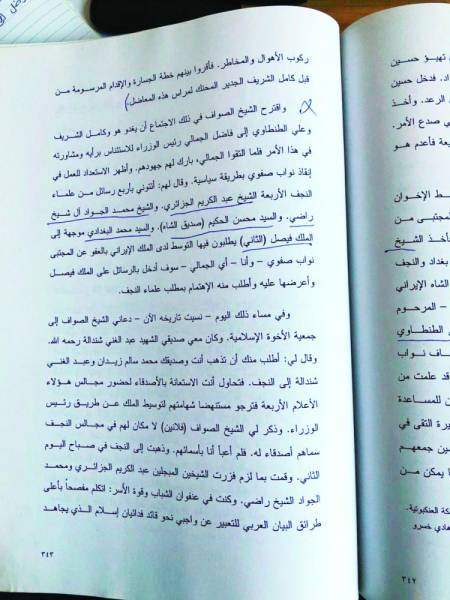 ركوب الأهوال والمخاطر. فأقروا بينهم خطة الجسارة والإقدام المرسومة من
قبل كامل الشريف الجدير المحنك لمراس هذه المعاضل.
واقترح الشيخ الصواف في ذلك الاجتماع أن يغدو هو وكامل الشريف
وعلي الطنطاوي إلى فاضل الجمالي رئيس الوزراء للاستئناس برأيه ومشاورته
في هذا الأمر فلما التقوا الجمالي، بارك لهم جهودهم. وأظهر الاستعداد للعمل في
إنقاذ نواب صفوي بطريقة سياسية. وقال لهم: أئتوني بأربع رسائل من علماء
النجف الأربعة الشيخ عبد الكريم الجزائري. والشيخ محمد الجواد آل شيخ
راضي. والسيد محسن الحكيم (صديق الشاه). والسيد محمد البغدادي موجهة إلى
الملك فيصل (الثاني) يطلبون فيها التوسط لدى الملك الإيراني بالعفو عن المجتبى
نواب صفوي – وأنا – أي الجمالي – سوف أدخل بالرسائل على الملك فيصل
وأعرضها عليه وأطلب منه الإهتمام بمطلب علماء النجف.
وفي مساء ذلك اليوم – نسيت تاريخه الآن – دعاني الشيخ الصواف إلى
جمعية الأخوة الإسلامية. وكان معي صديقي الشهيد عبد الغني شندالة رحمه الله.
وقال لي: أطلب منك أن تذهب أنت وصديقك محمد سالم زيدان وعبد الغني
شندالة إلى النجف. فتحاول أنت الاستعانة بالأصدقاء لحضور مجالس هؤلاء
الأعلام الأربعة فترجو مستنهضا شهامتهم لتوسيط الملك عن طريق رئيس
الوزراء. وذكر لي الشيخ الصواف (فلانين) لا مكان لهم في مجالس النجف
سماهم أصدقاء له. فلم أعبأ أنا بأسمائهم. وذهبت إلى النجف في صباح اليوم
الثاني. وقمت بما لزم فزرت الشيخين المبجلين عبد الكريم الجزائري ومحمد
الجواد الشيخ راضي. وكنت في عنفوان الشباب وقوة الأسر: اتكلم مفصحاً بأعلى
طرائق البيان العربي للتعبير عن واجبي نحو قائد فدائيان إسلام الذي يجاهد
٣٤٣
تهيؤ حسين
فدخل حسين
الرعد. وأخذ
في صدع الأمر.
فأعدم هو
الإخوان
المجتبى من
فأخذ الشيخ
بغداد والنجف
الشاه الإيراني
– المرحوم
الطنطاوي
نواب
قد علمت من
للمساعدة
التقى في
جمعهم
يمكن من
العنكبوتية.
هادي خسرو
٣٤٢